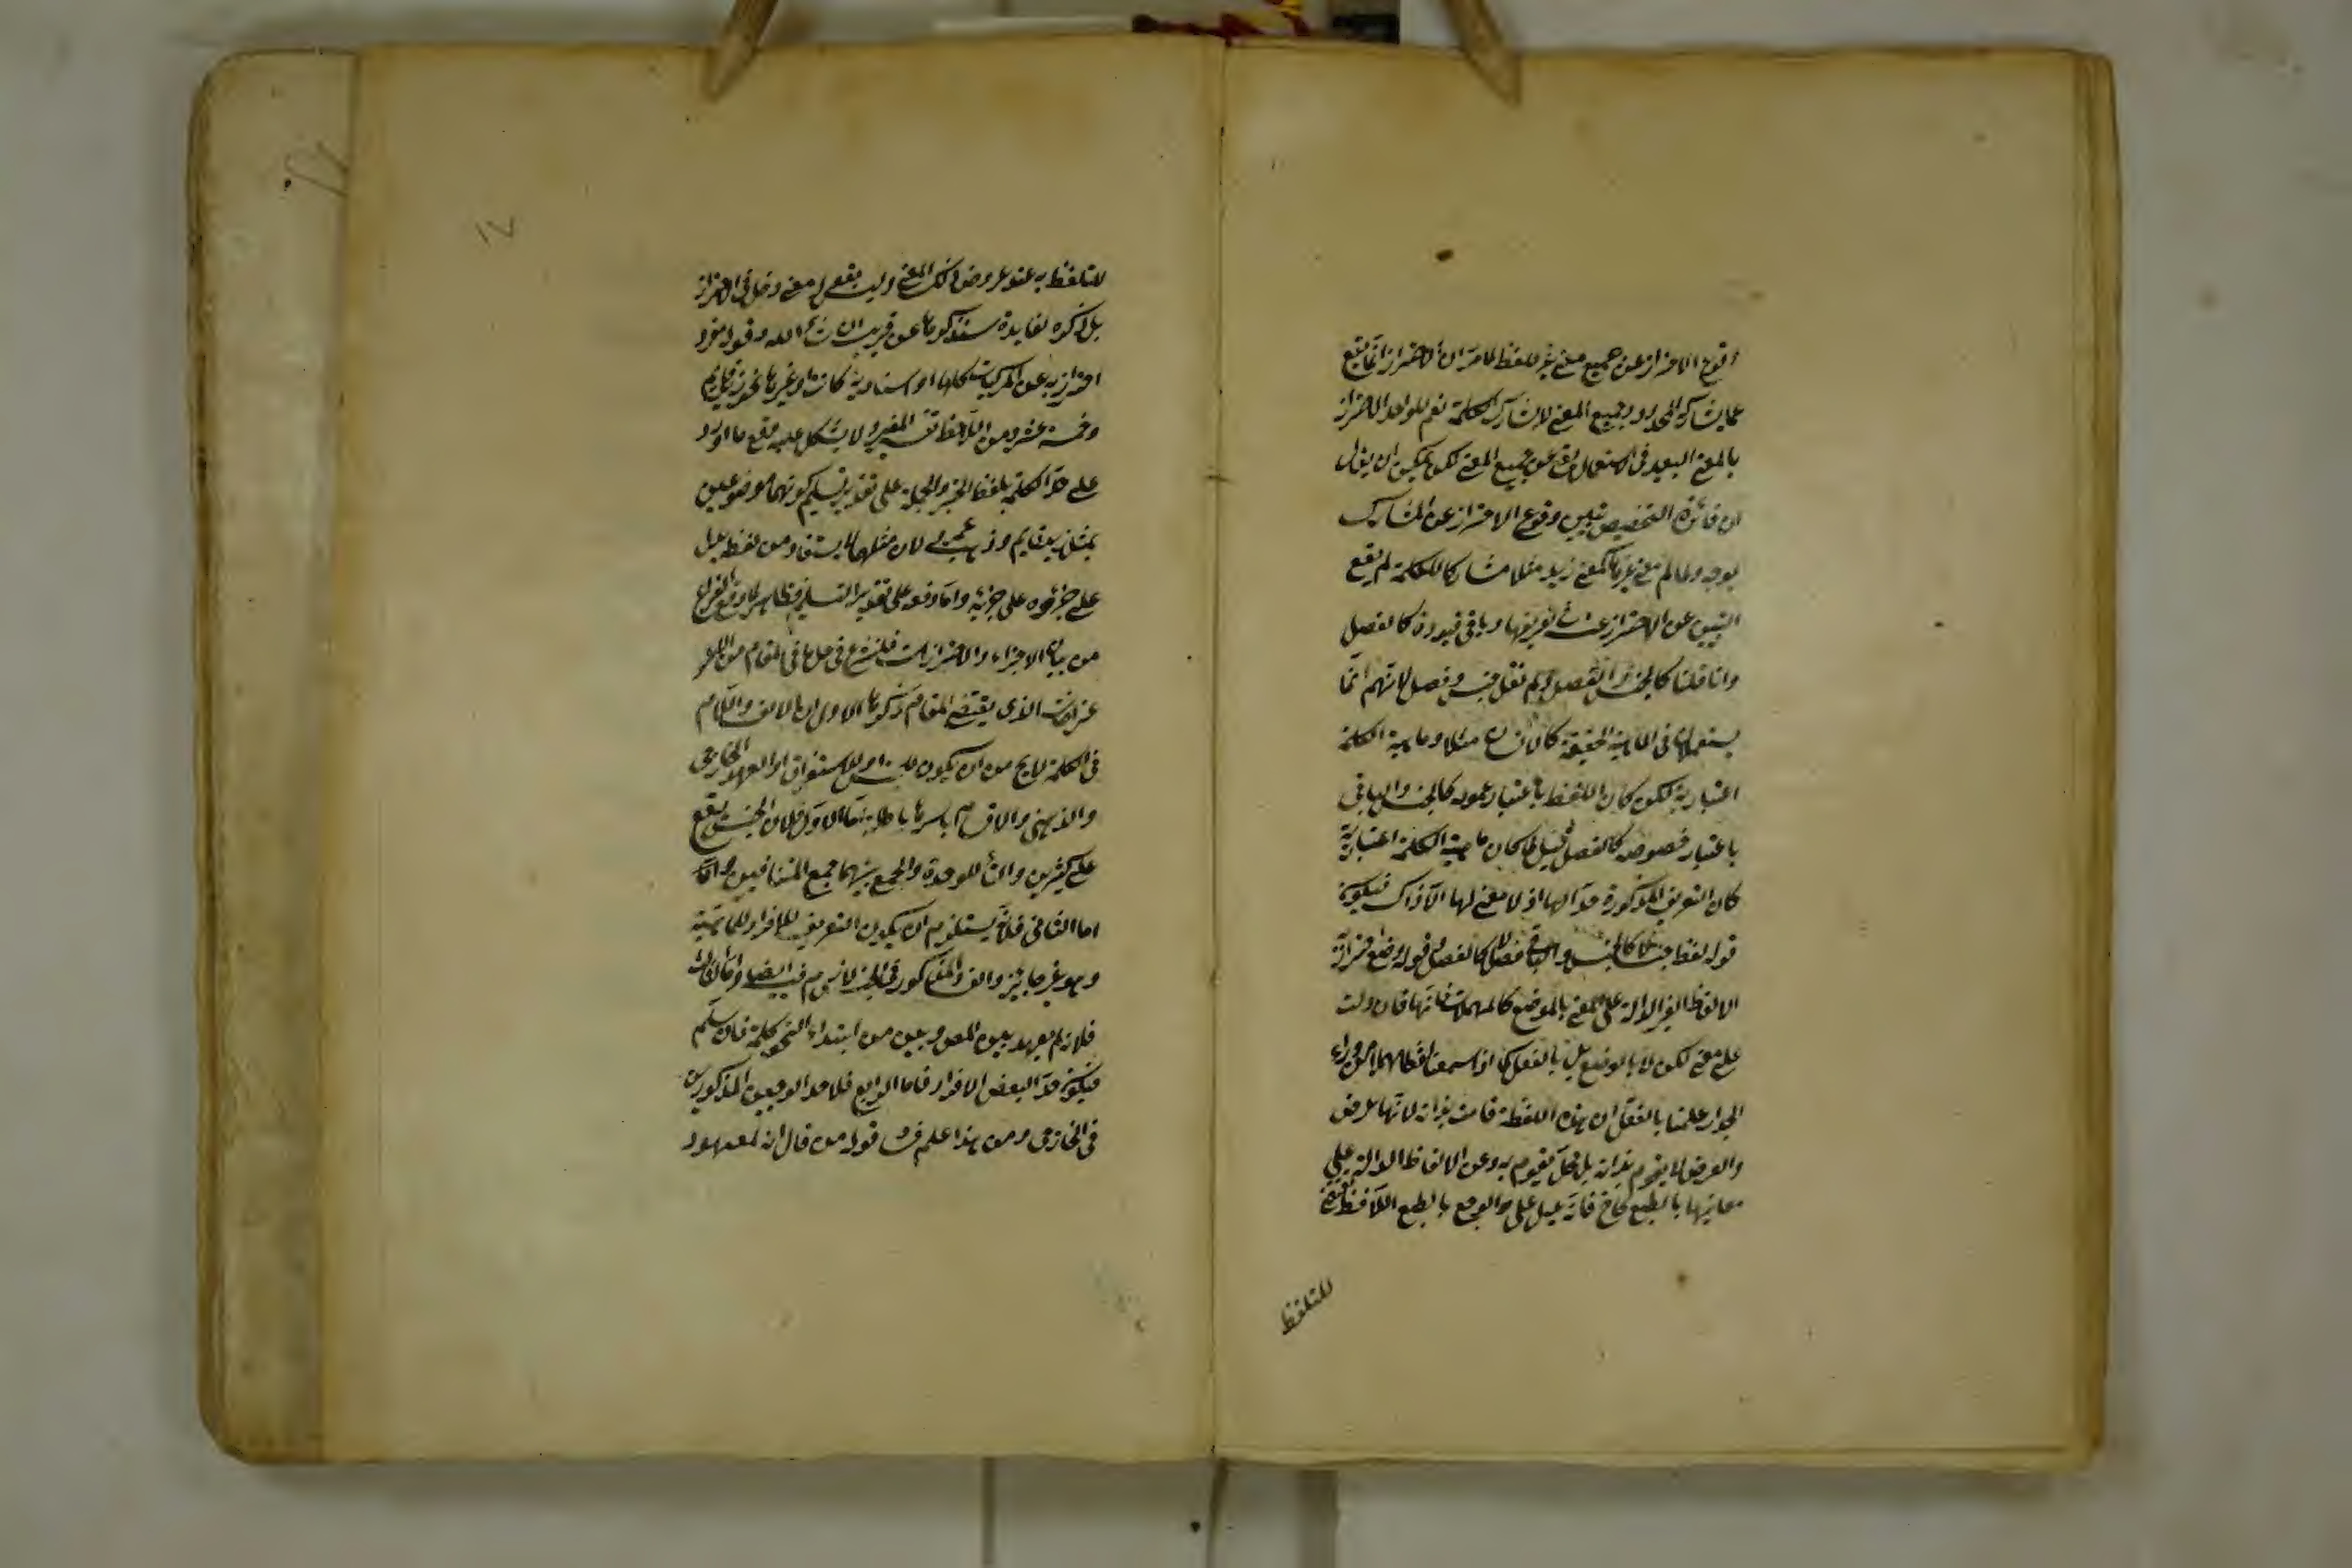 وقوع الاحتراز عن جميع معنى غير اللفظ لما مر ان الاحتراز انما يقع
عما يشارك المحدود وجميع المعنى لا يشارك الكلمة نعم للواحد الاحتراز
بالمعنى البعيد في الاستعمال يقع عن جميع المعنى لكن يمكن ان يقال
ان فائدة التخصيص تبيين وقوع الاحتراز عن المشارك
بوجه ولما لم معنى غيرها كمعنى زيد مثلا مشاركا للكلمة لم يقع
التبيين عن الاحتراز عنه في تعريفها وباقي قيوده كالفصل
وانما قلنا كالجنس والفصل ولم نقل جنس وفصل لانهم انما
يستعملان في الماهية الحقيقة كالانسان مثلا وماهية الكلمة
اعتبارية لكن كان اللفظ باعتبار عمومه كالجنس والباقي
باعتبار خصوصه كالفصل قيل لما كان ماهية الكلمة اعتبارية
كان التعريف المذكورة حدا لها اذ لا معنى لها الا ذاك فيكون
قوله لفظ جنسا كالجنس والباقي فصلا كالفصل قوله وضع احترازة
الالفاظ الغير الدالة على المعنى بالوضع كالمهملات فانها وان دلت
على معنى لكن لا بالوضع بل بالعقل كما اذا سمعنا لفظا مهملا من وراء
الجدار علمنا بالعقل ان هذه اللفظة قامت بذاته لانها عرض
والعرض لا يقوم بذاته بل بمحل يقوم به وعن الالفاظ الدالة على
معانيها بالطبع كاخ فانه يدل على الوجع بالطبع اللافظ
للتلفظ
١٧
للتلفظ به عند عروض ذلك المعنى وليس بقوله لمعنى دخل في الاحتراز
بل ذكره لفايدة سنذكرها عن قريب ان شاء الله وقوله مفرد
احتراز به عن المركبات كلها اسنادية كانت او غيرها نحو زيد قائم
وخمسة عشر ومن اللافظ المفرد لا يشكل عليه وقع ما اورد
على حد الكلمة بلفظ الخبر والجملة على تقدير تسليم كونهما موضوعين
بمثل زيد قايم وذهب عمرو لان مثلهما لا يستفاد من لفظ يدل
على جزئه على جزئه واما دفعه على تقدير التسليم فظاهر لما وقع الفراغ
من بيان الاجزاء والاحترازات فلنشرع في حل ما في المقام من
اعتراضات الذي يقتضي المقام ذكرها الاول ان الالف واللام
في الكلمة لا يخ من ان يكون للجنس او للاستغراق او العهد الخارجي
والذهني والاقسام باسرها باطلة اما الاول فلان الجنس يقع
على كثيرين والتاء للوحدة والجمع بينهما جمع المتنافيين
اما الثاني فلانه يستلزم ان يكون التعريف للافراد لا للماهية
وهو غير جائز والمذكور في الجنس لازم فيه ايضا واما الثالث
فلانه لم يعهد بين المص وبين من ابتداء النحو كلمة فان سلم
فيكون حد البعض الافراد فاما الرابع فلاحد الوجهين المذكورين
في الخارجي ومن هذا علم فساد قول من قال انه لمعهود